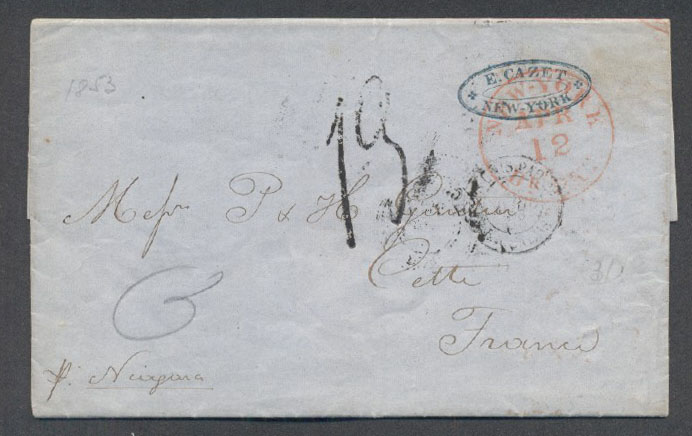 1853
E. CAZET
NEW-YORK
NEW-YORK
APR
12
Mess P & H
Cette
France
p. Niagara